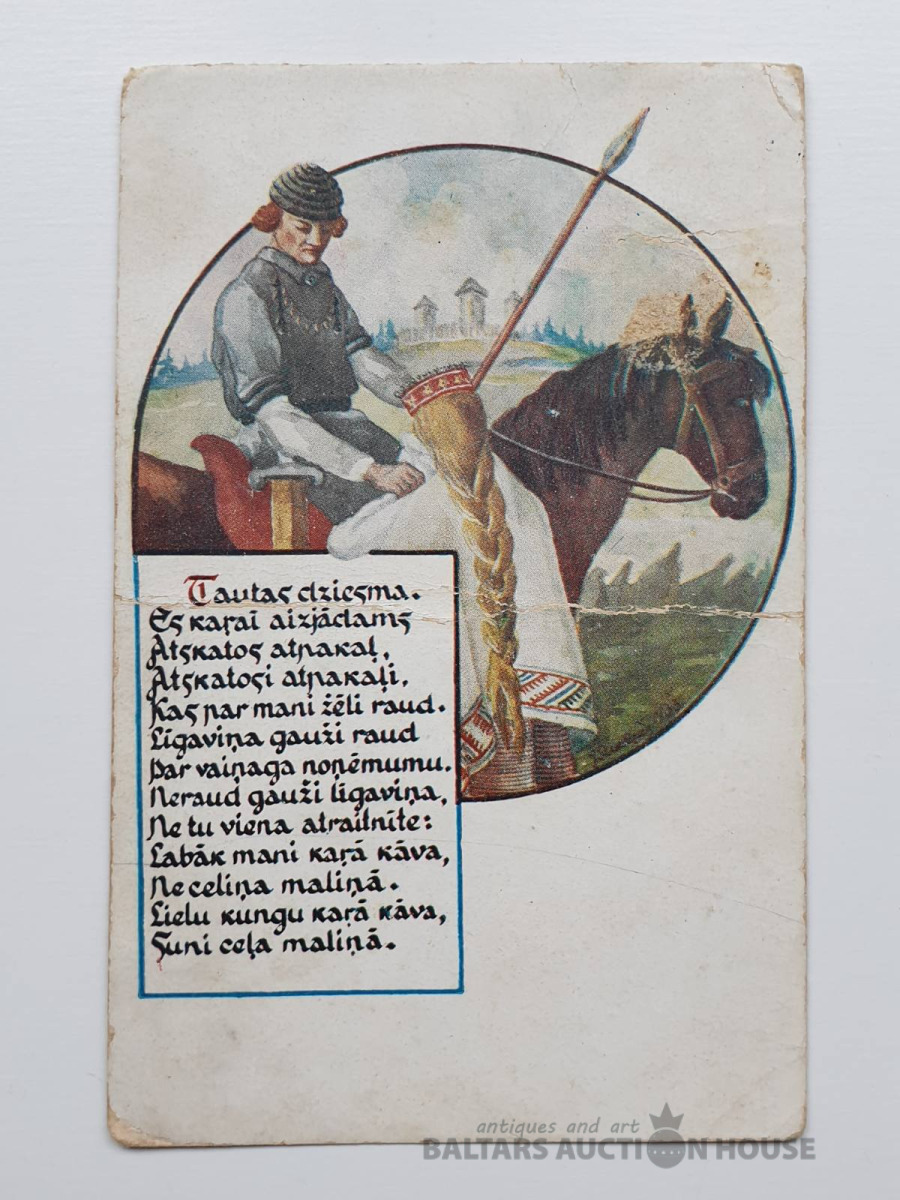 Tautas dziesma.
Es kaŗai aizjādams
Atskatos atpakaļ,
Atskatosi atpakaļi,
Kas par mani žēli raud.
Līgaviņa gauži raud
Par vaiņaga noņēmumu.
Neraud gauži līgaviņa,
Ne tu viena atraitnīte:
Labāk mani kaŗā kāva,
Ne celiņa maliņā.
Lielu kungu kaŗā kāva,
Suni ceļa maliņā.
antiques and art
BALTARS AUCTION HOUSE